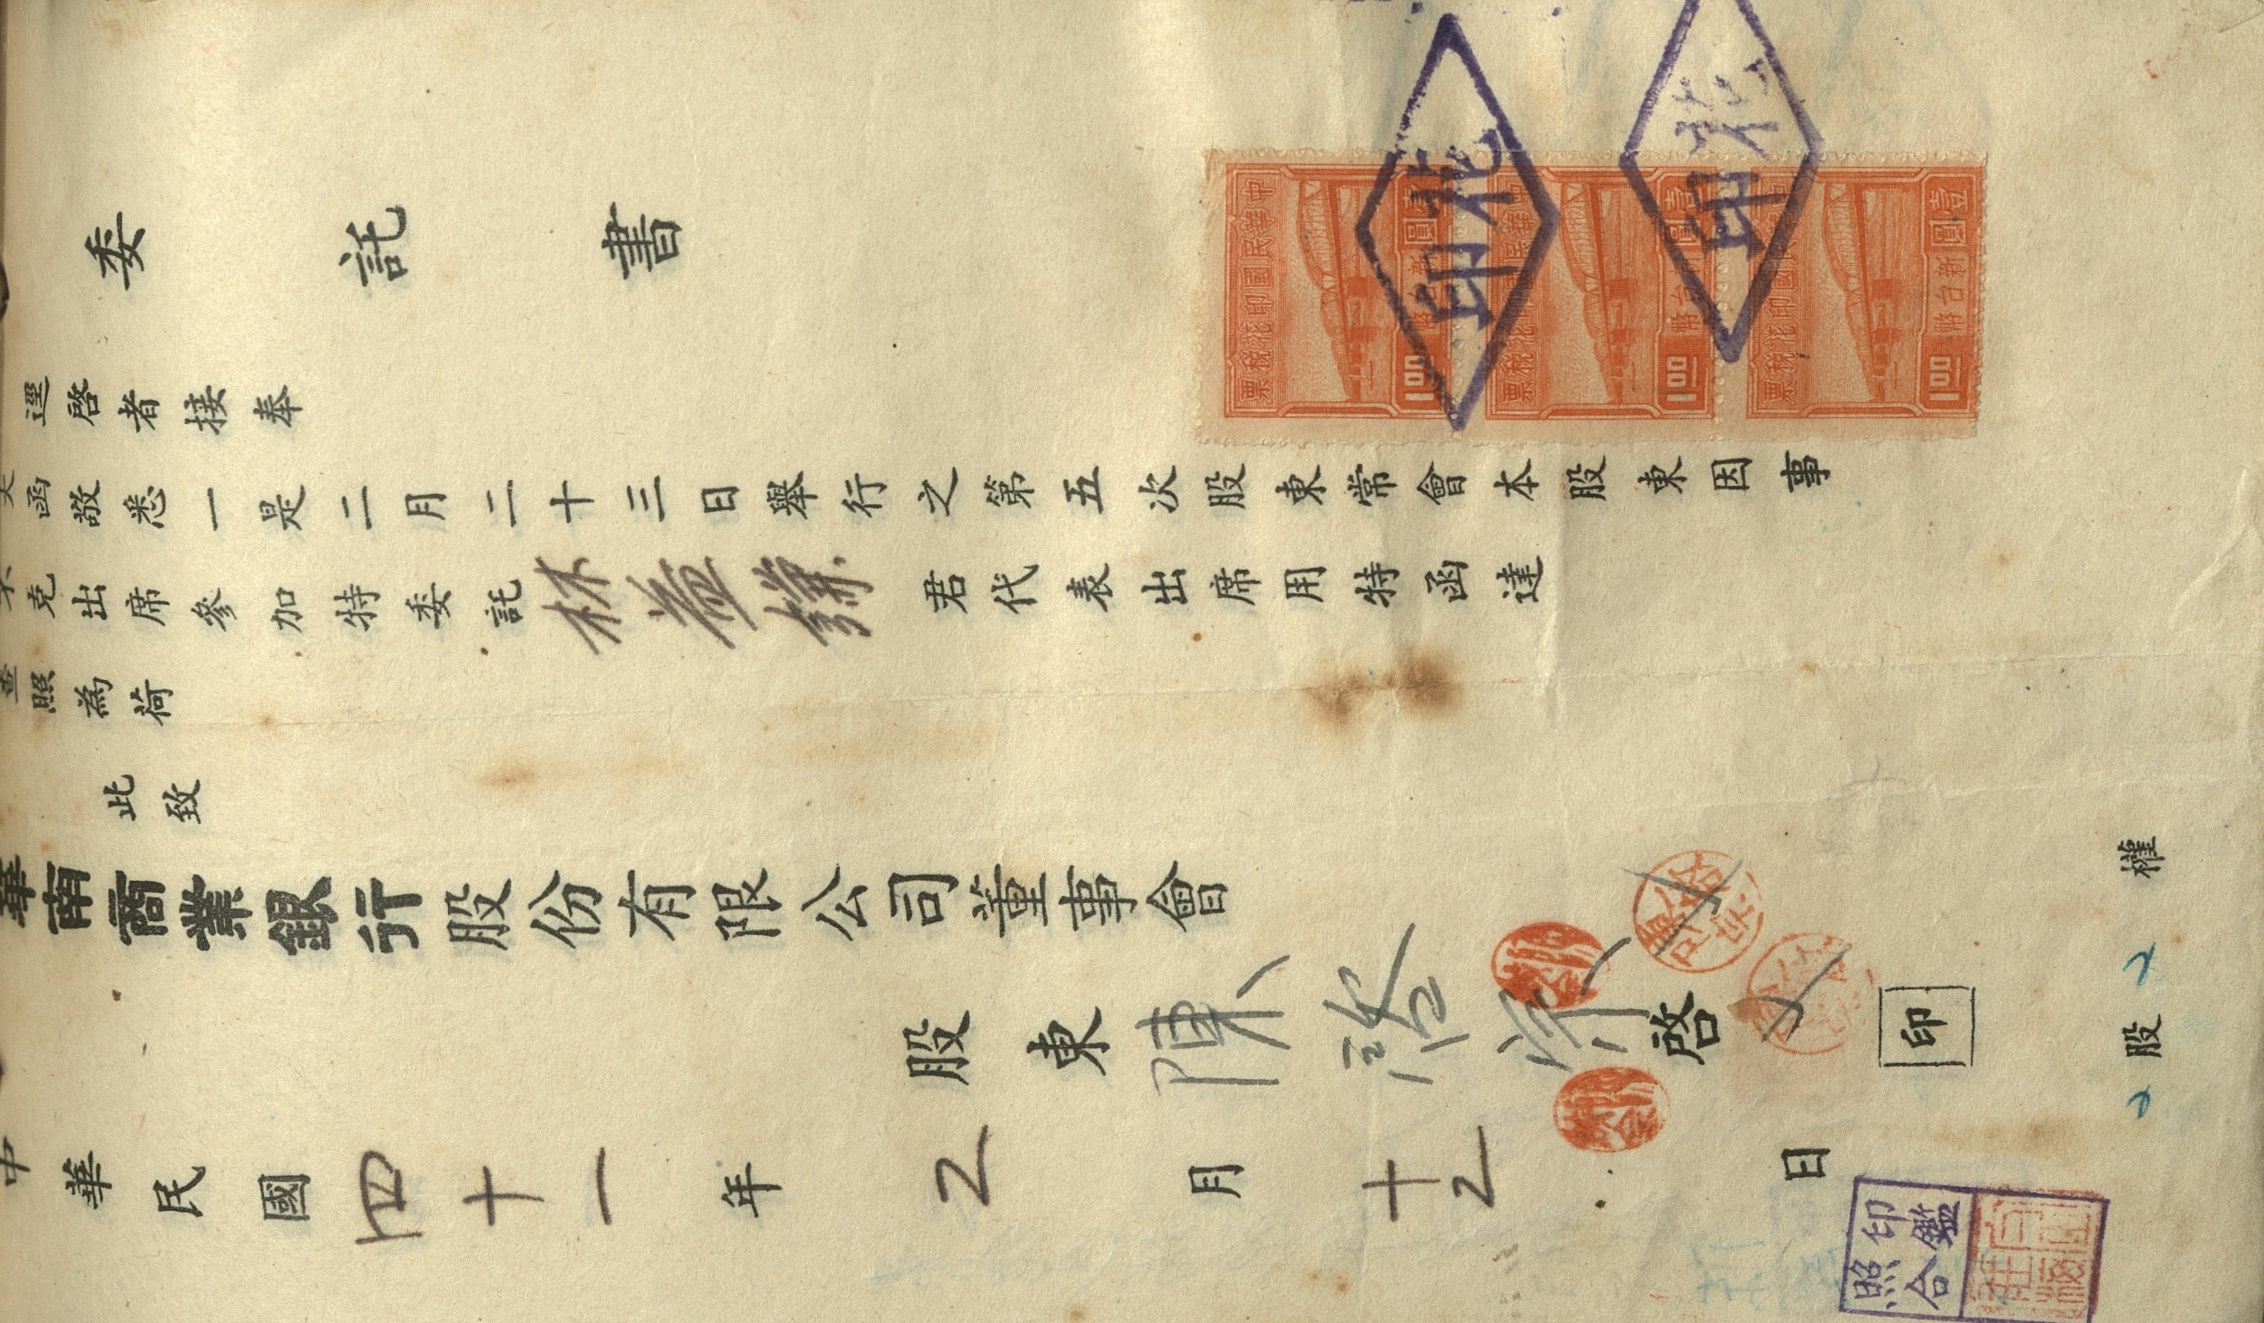 委託書
逕啓者接奉
函敬悉一是二月二十三日舉行之第五次股東常會本股東因事
克出席參加特委託林益謙君代表出席用特函達
照為荷
此致
華南商業銀行股份有限公司董事會
股東陳啓 啓 印
中華民國四十一年2月十2日
股 權
中華民國印花稅票
壹圓
新台幣
1.00
中華民國印花稅票
壹圓
新台幣
1.00
中華民國印花稅票
壹圓
新台幣
1.00
印花
印花
印鑑
照合